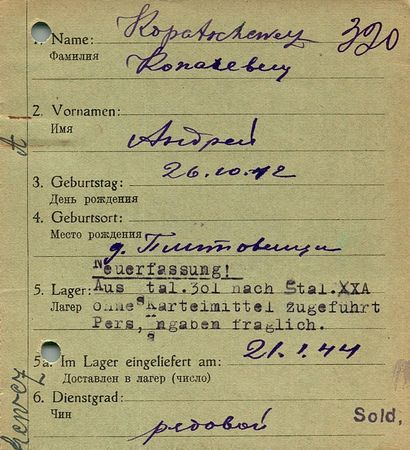 1. Name: Kopatschewez 320
Фамилия Копачевец
2. Vornamen:
Имя Андрей
3. Geburtstag: 26.10.12
День рождения
4. Geburtsort:
Место рождения д.
Neuerfassung!
5. Lager: Aus Stal.301 nach Stal.XXA
Лагерь ohne Karteimittel zugeführt
Pers, angaben fraglich.
21.1.44
5a. Im Lager eingeliefert am:
Доставлен в лагер (число)
6. Dienstgrad:
Чин Sold,
рядовой